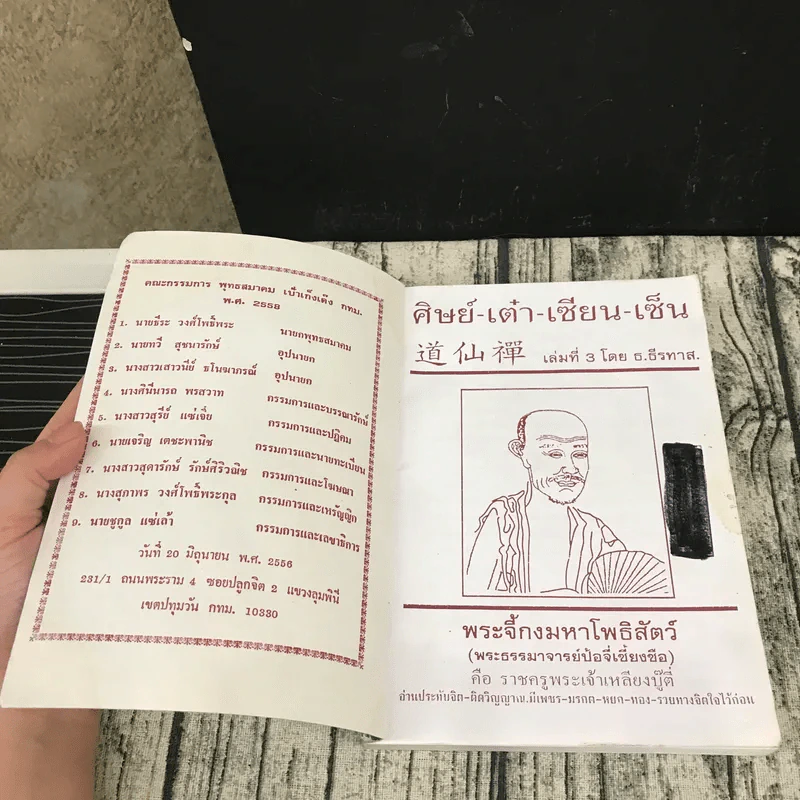 คณะกรรมการ พุทธสมาคม เป้าเก็งเต๊ง กทม.
พ.ศ. 2558
1. นายธีระ วงศ์โพธิ์พระ นายกพุทธสมาคม
2. นายทวี สุชนารักษ์ อุปนายก
3. นางสาวเสาวนีย์ ธโนฆาภรณ์ อุปนายก
4. นางศินีนารถ พรสวาท กรรมการและบรรณารักษ์
5. นางสาวสุรีย์ แซ่เจ็ย กรรมการและปฏิคม
6. นายเจริญ เตชะพานิช กรรมการและนายทะเบียน
7. นางสาวสุดารักษ์ รักษ์ศิริวณิช กรรมการและโฆษณา
8. นางสุภาพร วงศ์โพธิ์พระกุล กรรมการและเหรัญญิก
9. นายชูกูล แซ่เล้า กรรมการและเลขาธิการ
วันที่ 20 มิถุนายน พ.ศ. 2556
231/1 ถนนพระราม 4 ซอยปลูกจิต 2 แขวงลุมพินี
เขตปทุมวัน กทม. 10330
ศิษย์-เต๋า-เซียน-เซ็น
道仙禪 เล่มที่ 3 โดย ธ.ธีรทาส.
พระจี้กงมหาโพธิสัตว์
(พระธรรมาจารย์ป้อจี่เซี้ยงซือ)
คือ ราชครูพระเจ้าเหลียงบู๊ตี่
อ่านประทับจิต-ติดวิญญาณ.มีเพชร-มรกต-หยก-ทอง-รวยทางจิตใจไว้ก่อน